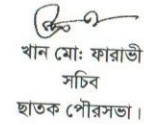 খান মো: ফারাভী
সচিব
ছাতক পৌরসভা।